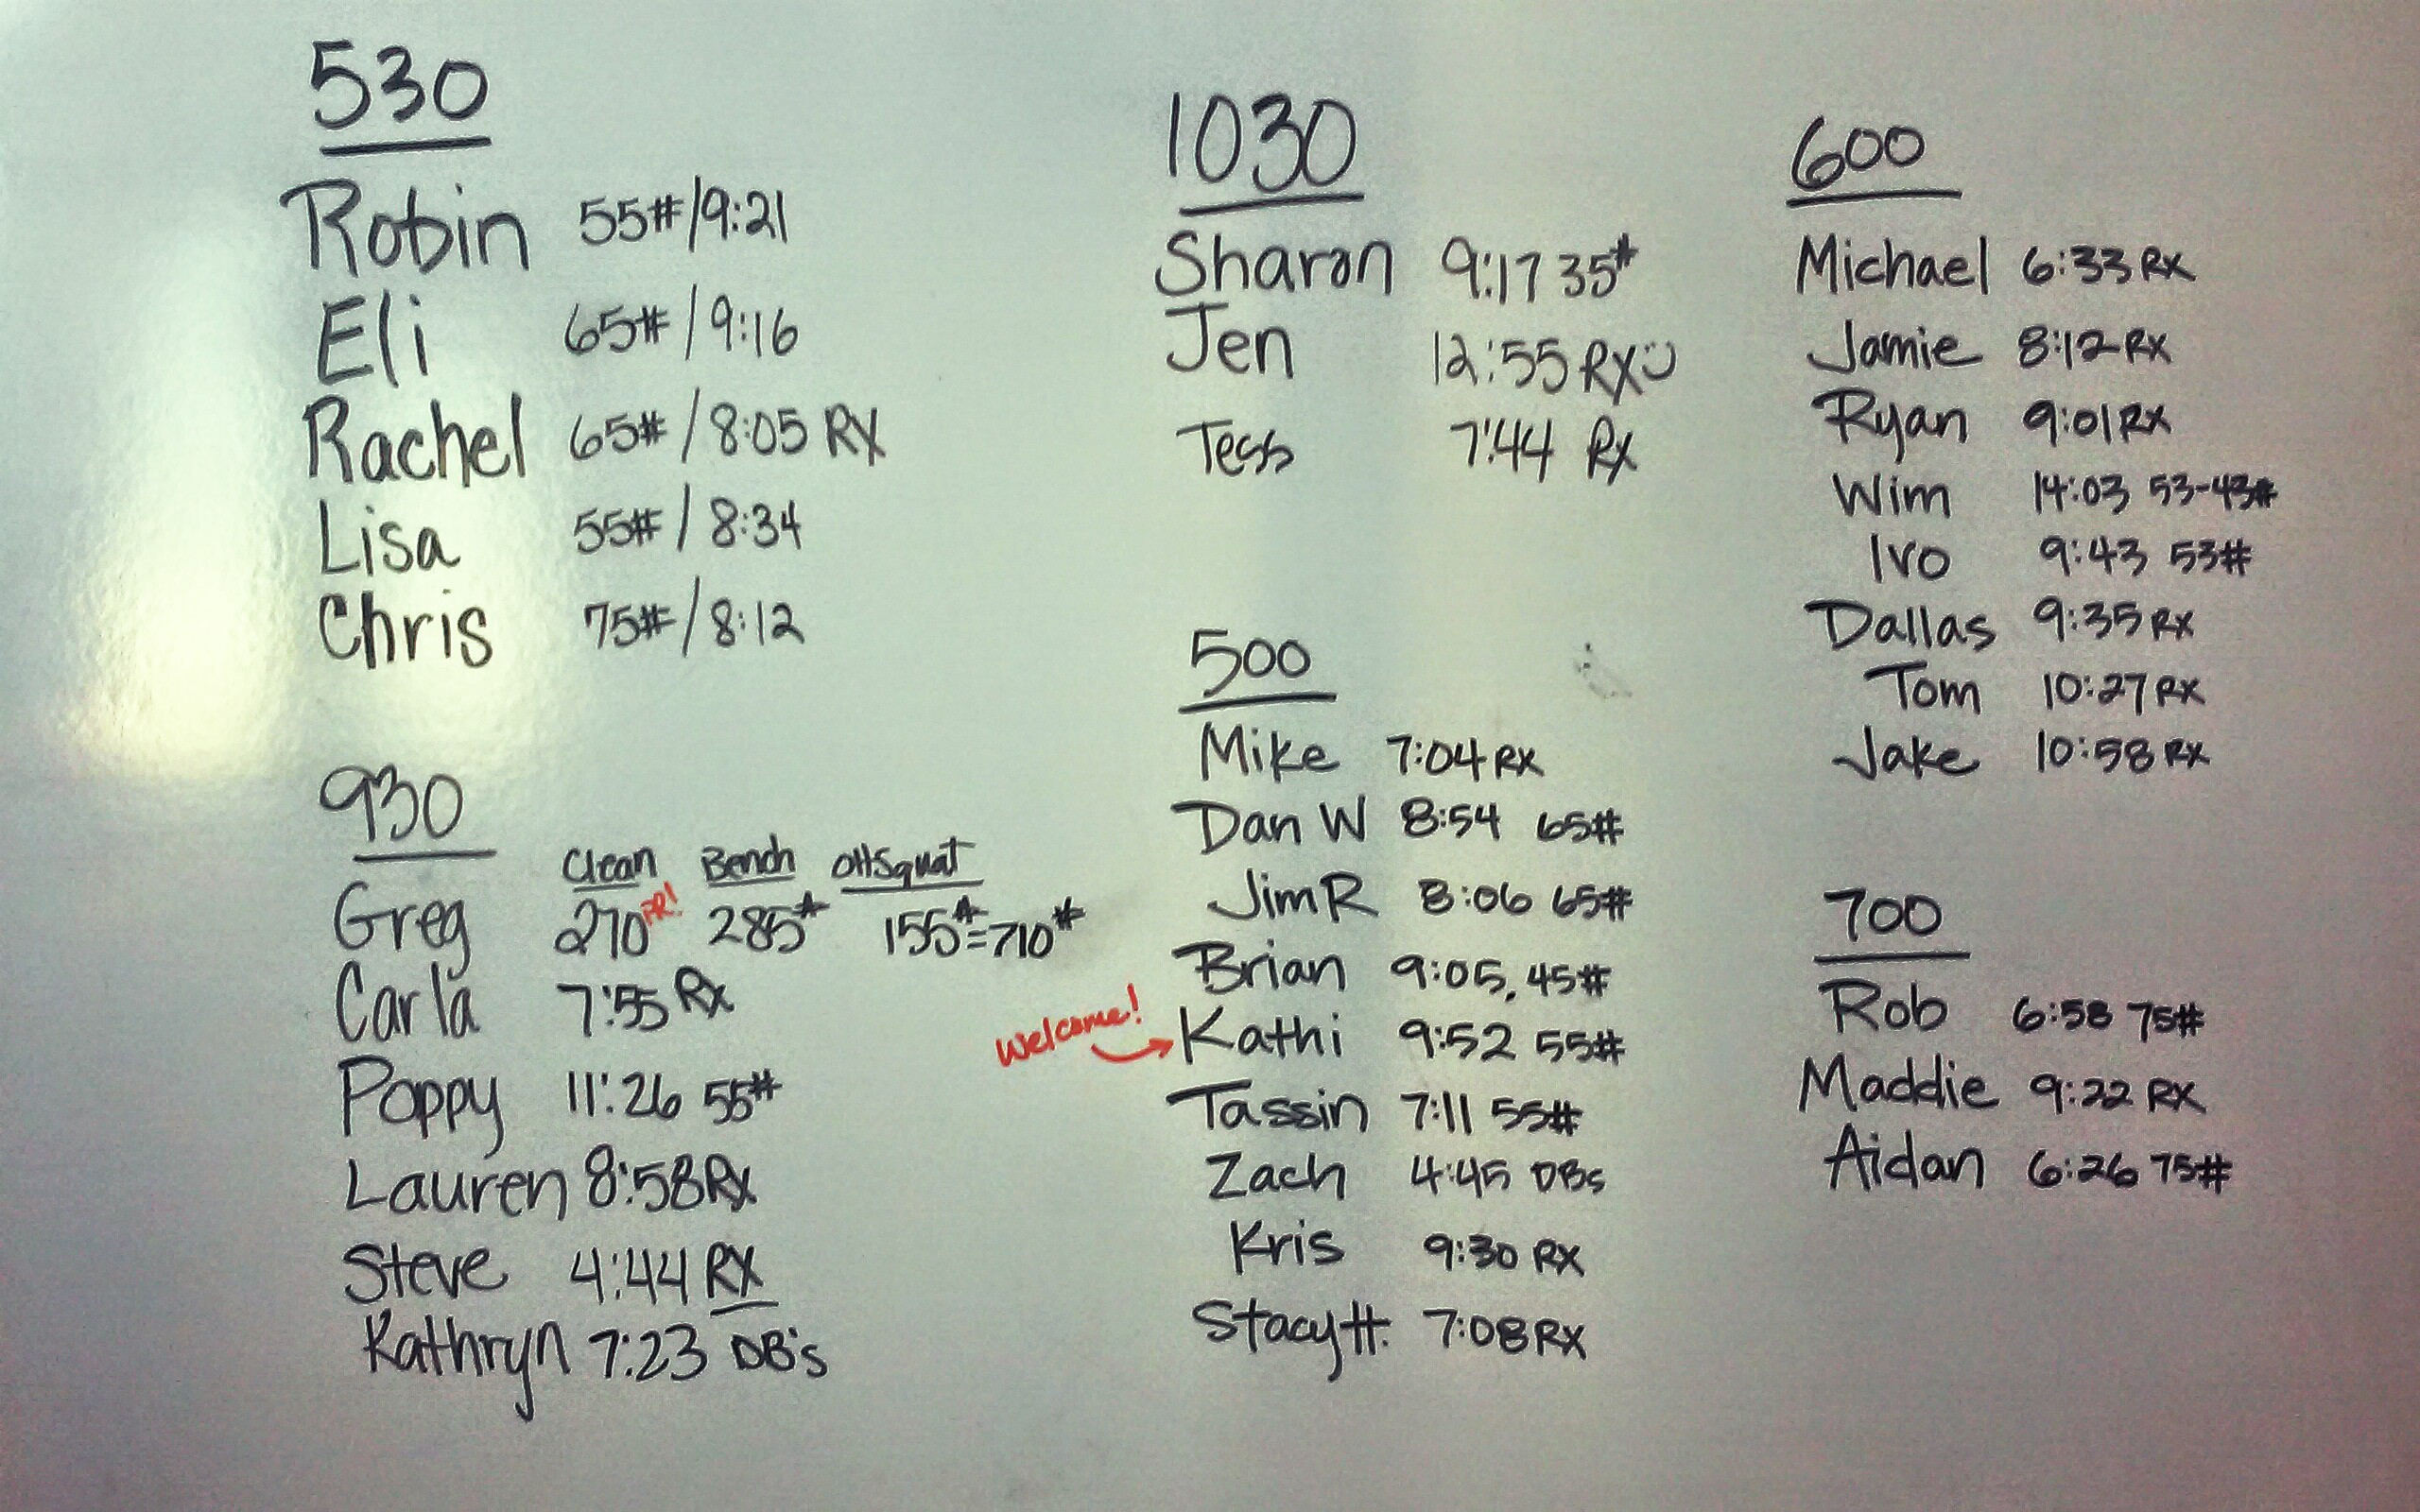 530
Robin 55#/9:21
Eli 65#/9:16
Rachel 65#/8:05 RX
Lisa 55#/8:34
Chris 75#/8:12
930
Clean Bench OHSquat
Greg 270 PR! 285# 155#=710#
Carla 7:55 Rx
Poppy 11:26 55#
Lauren 8:58 Rx
Steve 4:44 RX
Kathryn 7:23 DB's
1030
Sharon 9:17 35#
Jen 12:55 RX :)
Tess 7:44 Rx
500
Mike 7:04 RX
Dan W 8:54 65#
Jim R 8:06 65#
Brian 9:05, 45#
Welcome! → Kathi 9:52 55#
Tassin 7:11 55#
Zach 4:45 DBs
Kris 9:30 RX
Stacy H. 7:08 RX
600
Michael 6:33 RX
Jamie 8:12 RX
Ryan 9:01 RX
Wim 14:03 53-43#
Ivo 9:43 53#
Dallas 9:35 RX
Tom 10:27 RX
Jake 10:58 RX
700
Rob 6:58 75#
Maddie 9:22 RX
Aidan 6:26 75#